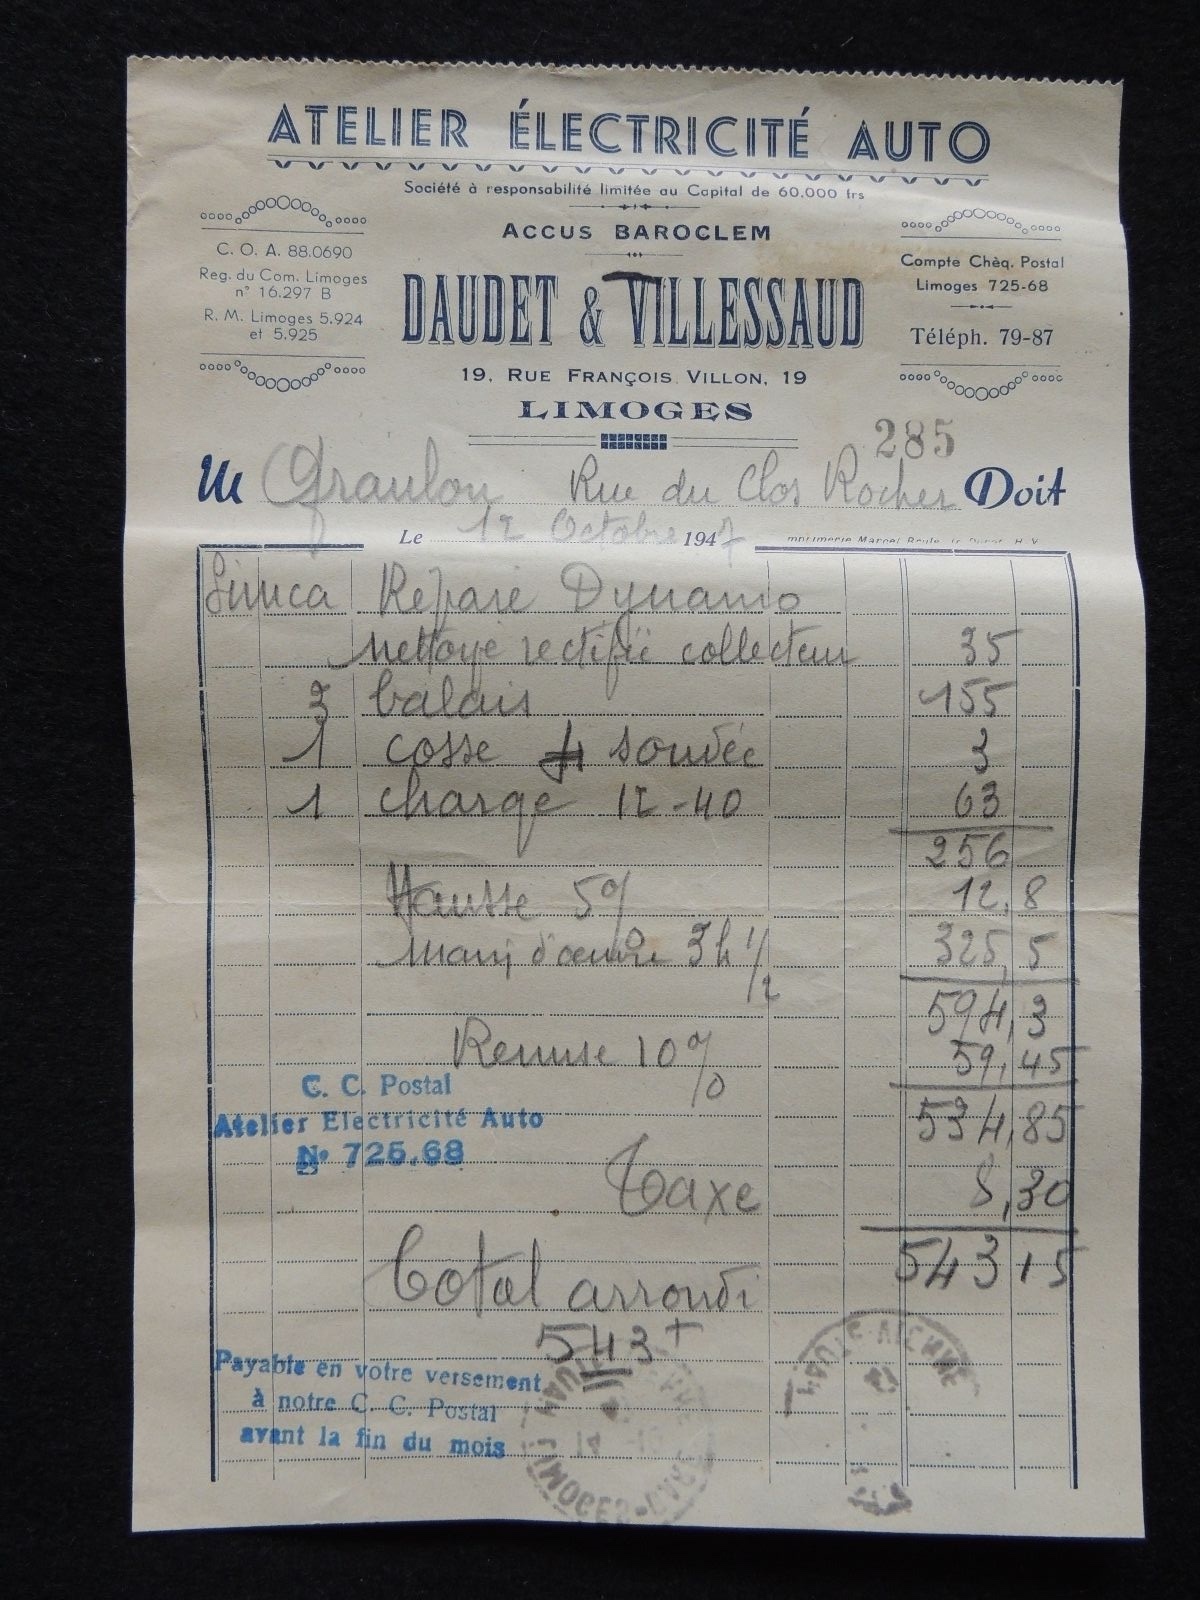 ATELIER ÉLECTRICITÉ AUTO
Société à responsabilité limitée au Capital de 60.000 frs
ACCUS BAROCLEM
C. O. A. 88.0690
Reg. du Com. Limoges
n° 16.297 B
R. M. Limoges 5.924
et 5.925
DAUDET & VILLESSAUD
Compte Chèq. Postal
Limoges 725-68
Téléph. 79-87
19, RUE FRANÇOIS VILLON, 19
LIMOGES
285
M Graulou Rue du Clos Rocher Doit
Le 12 Octobre 1947 Imprimerie Marcel
Simca Réparé Dynamo
Nettoyé rectifié collecteur 35
3 balais 155
1 cosse soudée 3
1 charge 12-40 63
256
Hausse 5% 12,8
Main d'œuvre 3h 1/2 325,5
594,3
Remise 10% 59,45
C. C. Postal
Atelier Electricité Auto
N° 725.68
534,85
Taxe 8,30
543 15
Total arrondi
543
Payable en votre versement
à notre C. C. Postal
avant la fin du mois
LIMOGES